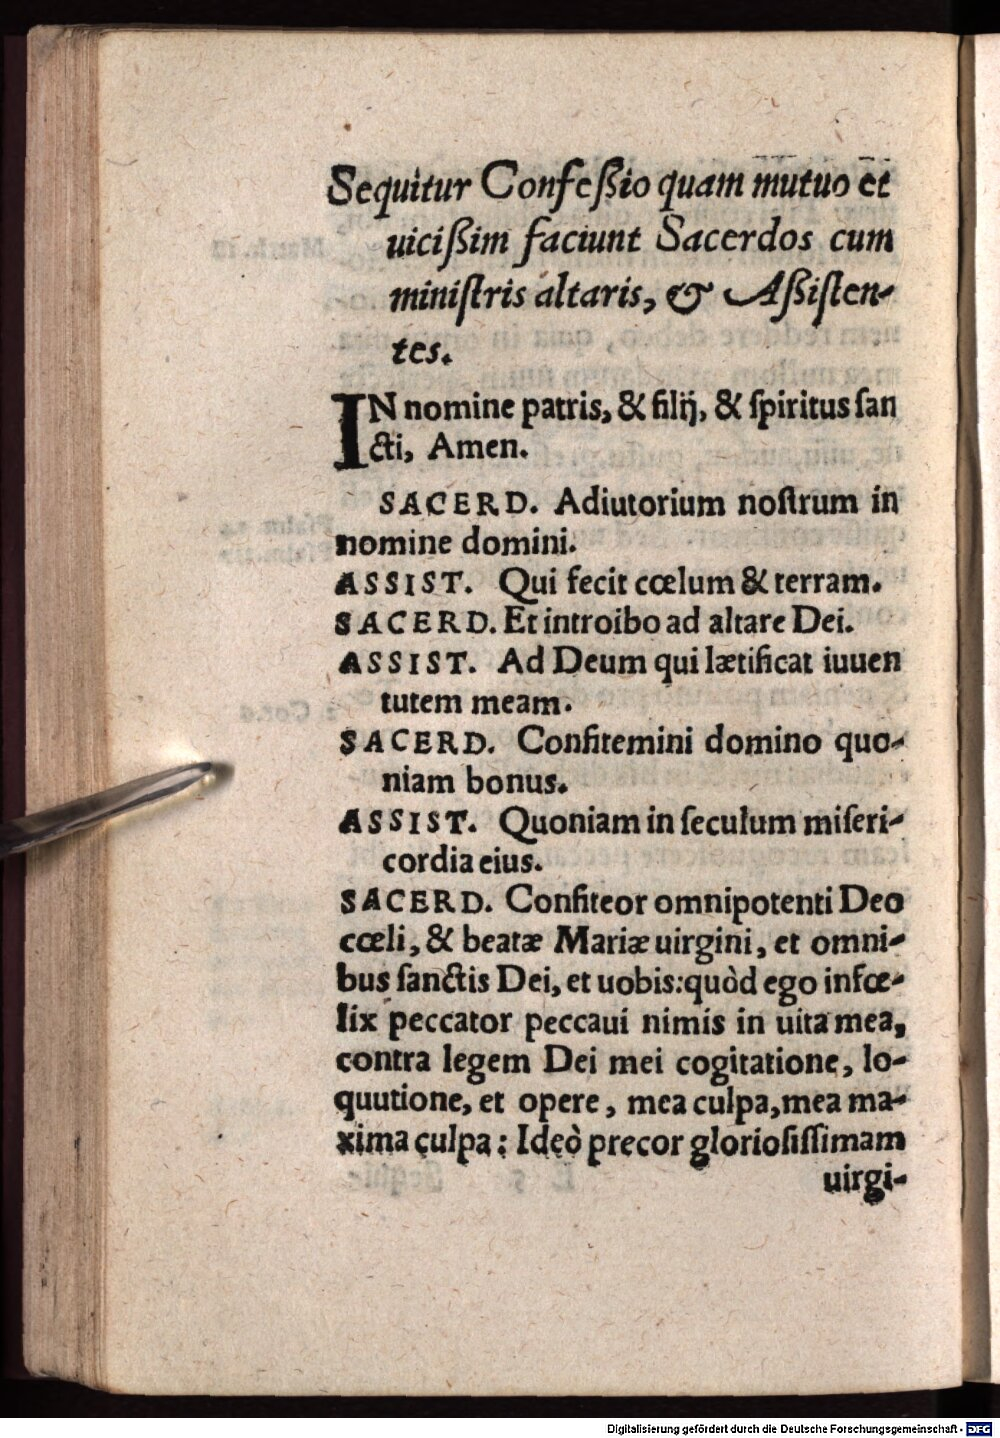 Sequitur Confeßio quam mutuo et
uicißim faciunt Sacerdos cum
miniſtris altaris, & Aßiſten-
tes.
IN nomine patris, & filij, & ſpiritus ſan
cti, Amen.
SACERD. Adiutorium noſtrum in
nomine domini.
ASSIST. Qui fecit cœlum & terram.
SACERD. Et introibo ad altare Dei.
ASSIST. Ad Deum qui lætificat iuuen
tutem meam.
SACERD. Confitemini domino quo-
niam bonus.
ASSIST. Quoniam in ſeculum miſeri-
cordia eius.
SACERD. Confiteor omnipotenti Deo
cœli, & beatæ Mariæ uirgini, et omni-
bus ſanctis Dei, et uobis: quòd ego infœ-
lix peccator peccaui nimis in uita mea,
contra legem Dei mei cogitatione, lo-
quutione, et opere, mea culpa, mea ma-
xima culpa: Ideò precor glorioſiſſimam
uirgi-
Digitalisierung gefördert durch die Deutsche Forschungsgemeinschaft - DFG